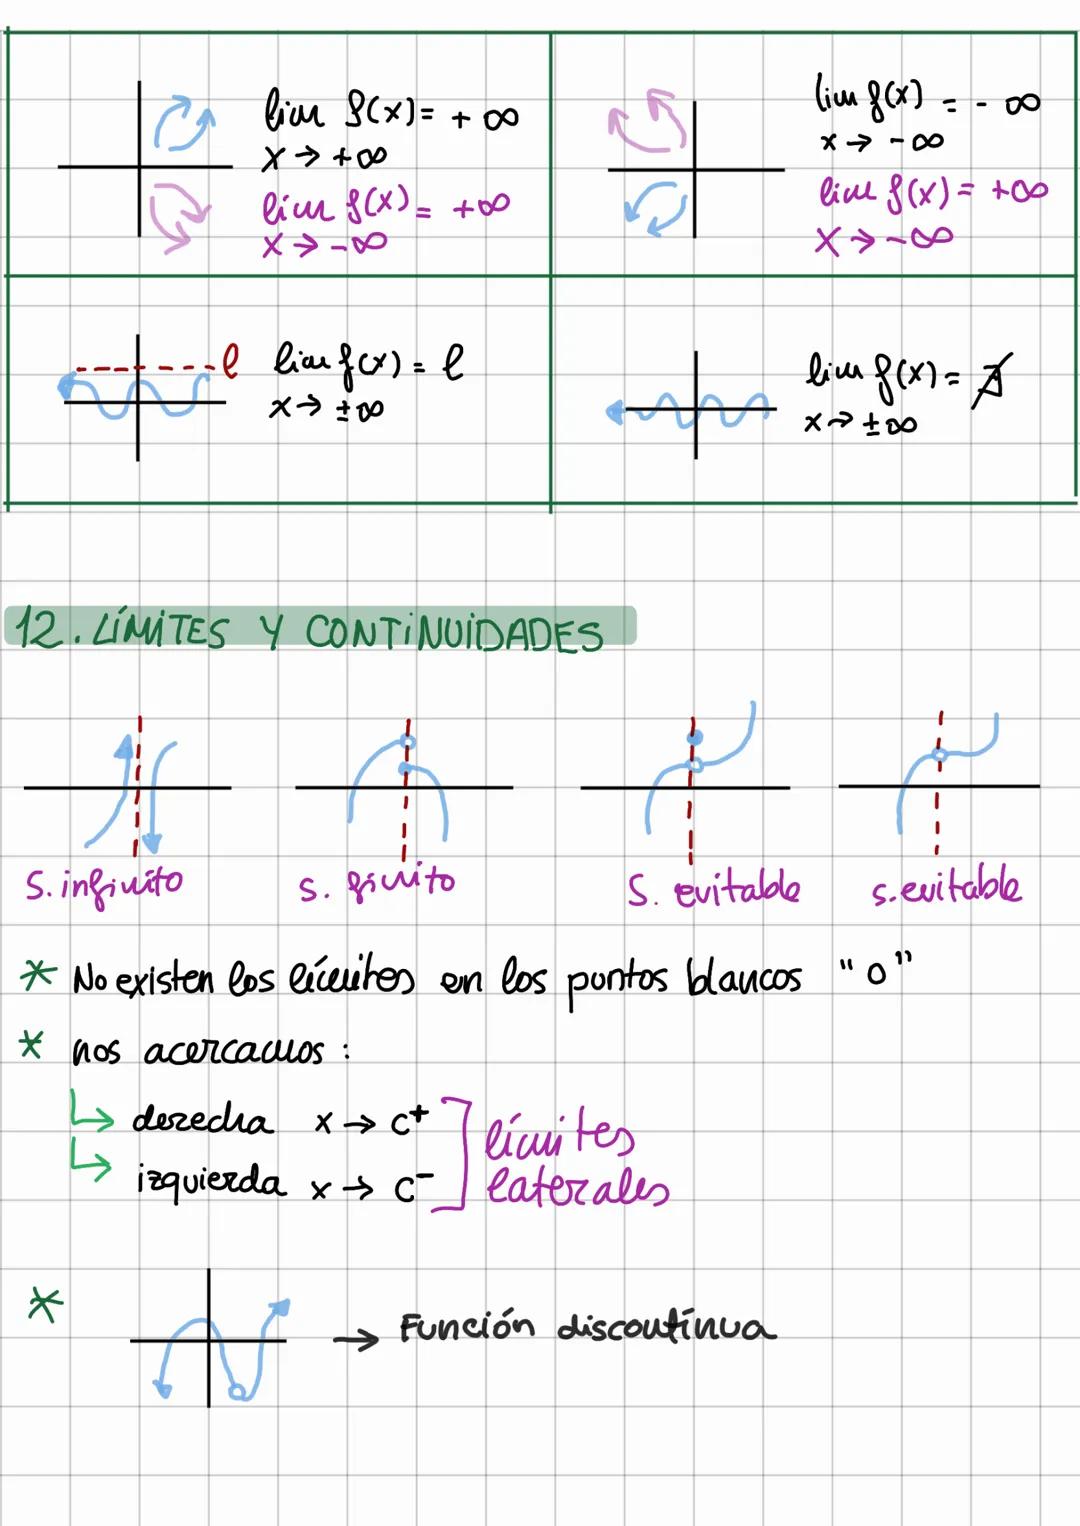 lim f(x) = + ∞
x → +∞
lim f(x) = +∞
x → -∞
lim f(x) = - ∞
x → -∞
lim f(x) = +∞
x → -∞
l
lim f(x) = l
x → ±∞
lim f(x) = ∄
x → ±∞
12. LÍMITES Y CONTINUIDADES
S. infinito
s. finito
S. evitable
s. evitable
* No existen los límites en los puntos blancos "o"
* nos acercamos :
↳ derecha x → c⁺
↳ izquierda x → c⁻
límites
laterales
*
→ Función discontínua